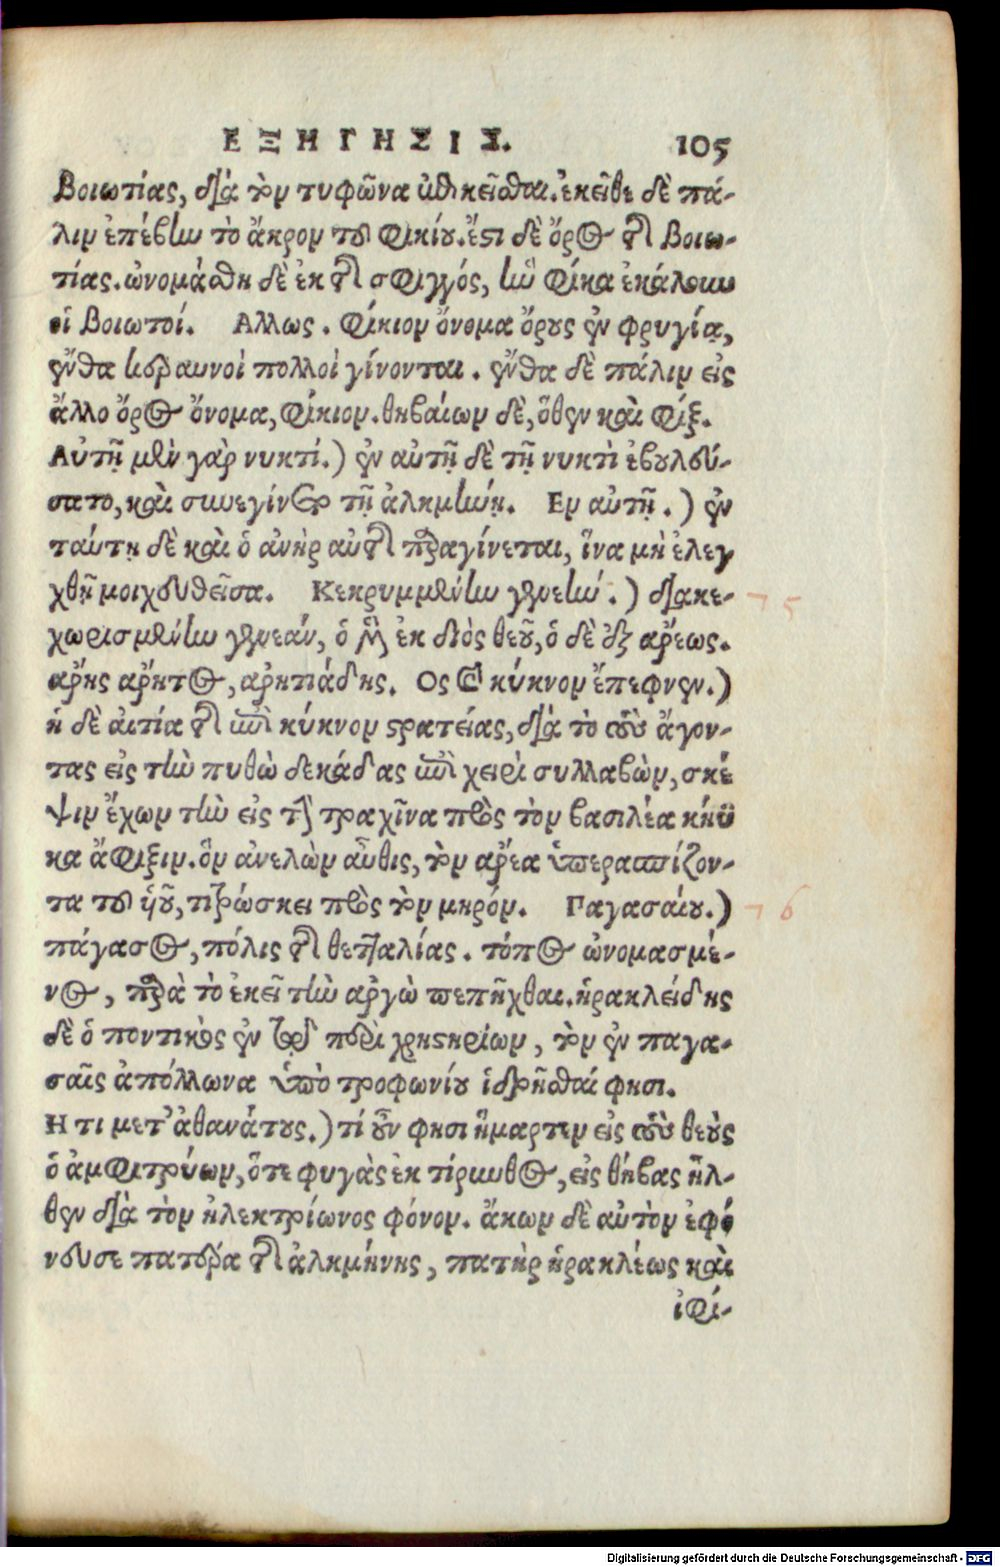 ΕΞΗΓΗΣΙΣ. 105
Βοιωτίας, διὰ τὸν τυφῶνα ὑποκεῖσθαι. ἐκεῖθε δὲ πά-
λιν ἐπέβην τὸ ἄκρον τοῦ Φικίου. ἔστι δὲ ὄρος τῆς Βοιω-
τίας. ὠνομάσθη δὲ ἐκ τῆς σφιγγός, ἣν Φίκα ἐκάλουν
οἱ Βοιωτοί. Αλλως. Φίκιον ὄνομα ὄρους ἐν φρυγίᾳ,
ἔνθα κεραυνοὶ πολλοὶ γίνονται. ἔνθα δὲ πάλιν εἰς
ἄλλο ὄρος ὄνομα, Φίκιον. θηβαίων δὲ, ὅθεν καὶ Φίξ.
Αὐτῇ μὲν γὰρ νυκτί.) ἐν αὐτῇ δὲ τῇ νυκτὶ ἐβουλεύ-
σατο, καὶ συνεγίνετο τῇ ἀλκμήνῃ. Εν αὐτῇ.) ἐν
ταύτῃ δὲ καὶ ὁ ἀνὴρ αὐτῆς παραγίνεται, ἵνα μὴ ἐλεγ
χθῇ μοιχευθεῖσα. Κεκρυμμένην γενεήν.) διακε-
χωρισμένην γενεάν, ὁ μὲν ἐκ διὸς θεοῦ, ὁ δὲ ἐξ ἄρεως.
ἄρης ἄρητος, ἀρητιάδης. Ος καὶ κύκνον ἔπεφνεν.)
ἡ δὲ αἰτία τῆς ἐπὶ κύκνον στρατείας, διὰ τὸ τοὺς ἄγον-
τας εἰς τὴν πυθὼ δεκάδας ἐπὶ χειρὶ συλλαβὼν, σκέ
ψιν ἔχων τὴν εἰς τὴν τραχῖνα πρὸς τὸν βασιλέα κήϋ
κα ἄφιξιν. ὃν ἀνελὼν αὖθις, τὸν ἄρεα ὑπερασπίζον-
τα τοῦ ὑιοῦ, τιτρώσκει πρὸς τὸν μηρόν. Παγασαίου.)
πάγασος, πόλις τῆς θετταλίας. τόπος ὠνομασμέ-
νος, παρὰ τὸ ἐκεῖ τὴν ἀργὼ πεπῆχθαι. ἡρακλείδης
δὲ ὁ ποντικὸς ἐν τῷ περὶ χρηστηρίων, τὸν ἐν παγα-
σαῖς ἀπόλλωνα ὑπὸ τροφωνίου ἱδρῆσθαί φησι.
Η τι μετ' ἀθανάτους.) τί οὖν φησι ἥμαρτεν εἰς τοὺς θεοὺς
ὁ ἀμφιτρύων, ὅτε φυγὰς ἐκ τίρυνθος, εἰς θήβας ἦλ-
θεν διὰ τὸν ἠλεκτρίωνος φόνον. ἄκων δὲ αὐτὸν ἐφό
νευσε πατέρα τῆς ἀλκμήνης, πατὴρ ἡρακλέως καὶ
ἰφι-
5
6
Digitalisierung gefördert durch die Deutsche Forschungsgemeinschaft - DFG